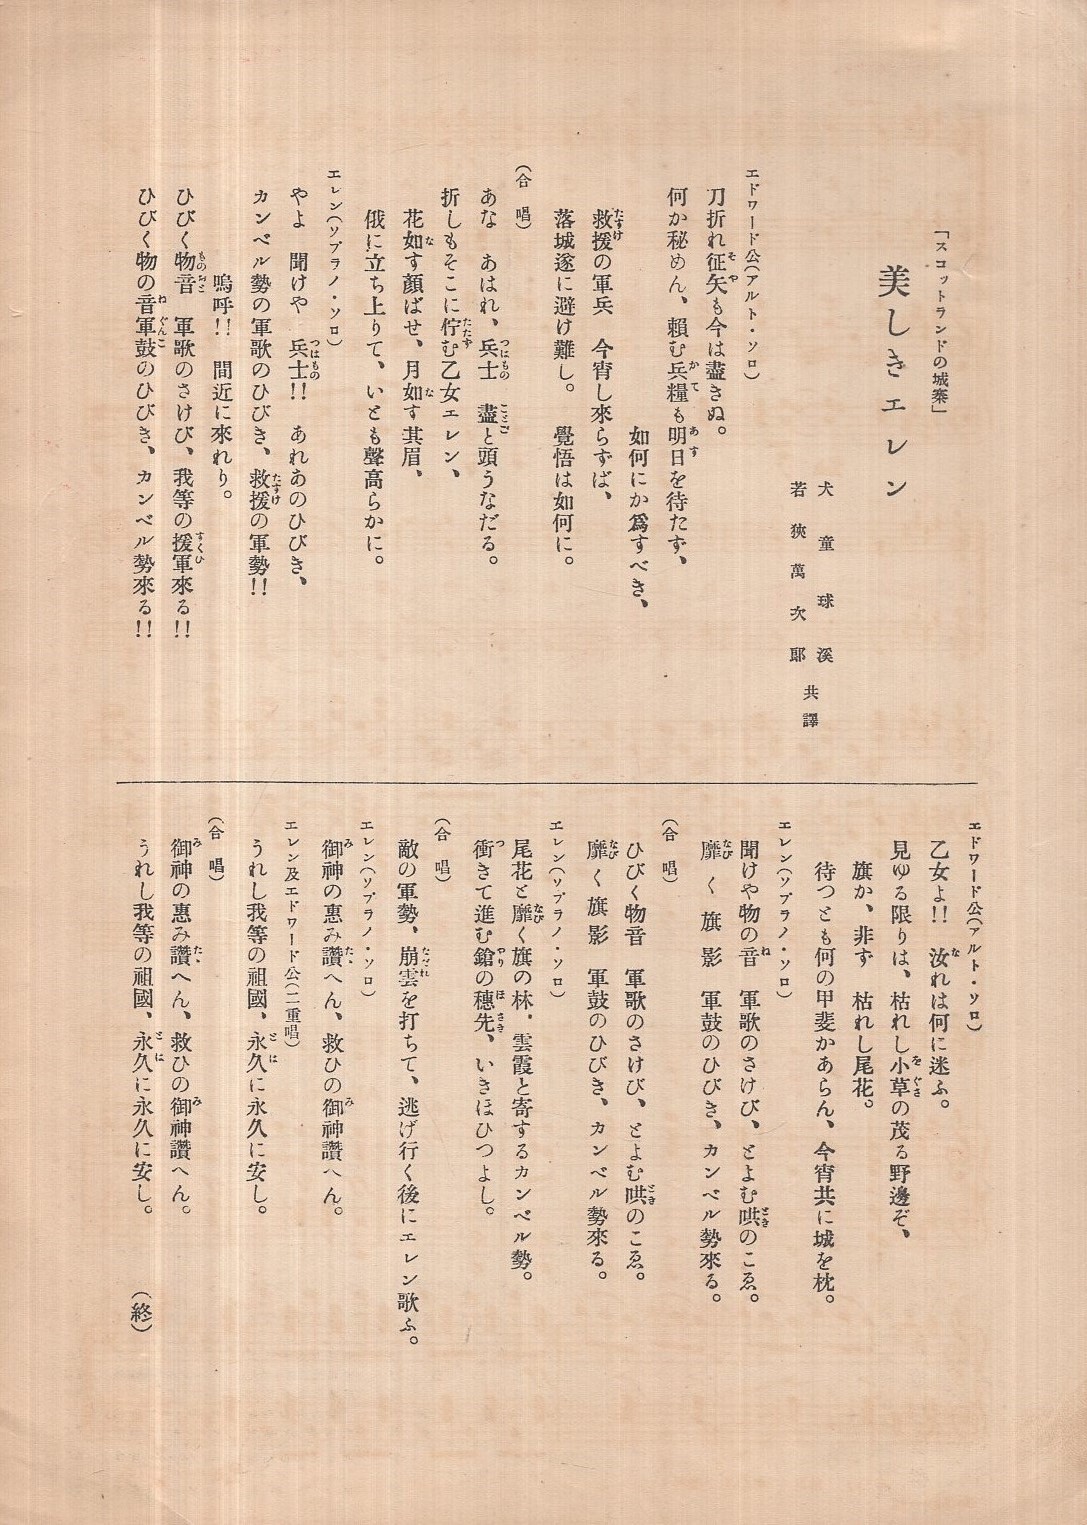 「スコットランドの城寨」
美しきエレン
犬童球溪
若狹萬次郎
共譯
エドワード公(アルト・ソロ)
刀折れ征矢も今は盡きぬ。
何か秘めん、賴む兵糧も明日を待たず、
如何にか爲すべき、
救援の軍兵 今宵し來らずば、
落城遂に避け難し。 覺悟は如何に。
(合唱)
あな あはれ、兵士 盡と頭うなだる。
折しもそこに佇む乙女エレン、
花如す顏ばせ、月如す其眉、
俄に立ち上りて、いとも聲高らかに。
エレン(ソプラノ・ソロ)
やよ 聞けや 兵士!! あれあのひびき、
カンベル勢の軍歌のひびき、救援の軍勢!!
嗚呼!! 間近に來れり。
ひびく物音 軍歌のさけび、我等の援軍來る!!
ひびく物の音軍鼓のひびき、カンベル勢來る!!
エドワード公(アルト・ソロ)
乙女よ!! 汝れは何に迷ふ。
見ゆる限りは、枯れし小草の茂る野邊ぞ、
旗か、非ず 枯れし尾花。
待つとも何の甲斐かあらん、今宵共に城を枕。
エレン(ソプラノ・ソロ)
聞けや物の音 軍歌のさけび、とよむ哄のこゑ。
靡く旗影 軍鼓のひびき、カンベル勢來る。
(合唱)
ひびく物音 軍歌のさけび、とよむ哄のこゑ。
靡く旗影 軍鼓のひびき、カンベル勢來る。
エレン(ソプラノ・ソロ)
尾花と靡く旗の林、雲霞と寄するカンベル勢。
衝きて進む鎗の穗先、いきほひつよし。
(合唱)
敵の軍勢、崩雲を打ちて、逃げ行く後にエレン歌ふ。
エレン(ソプラノ・ソロ)
御神の惠み讚へん、救ひの御神讚へん。
エレン及エドワード公(二重唱)
うれし我等の祖國、永久に永久に安し。
(合唱)
御神の惠み讚へん、救ひの御神讚へん。
うれし我等の祖國、永久に永久に安し。
(終)